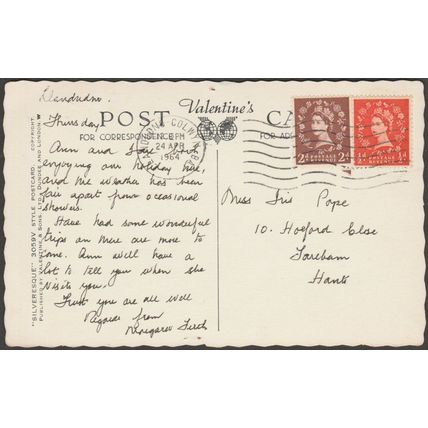 Llandudno.
Thursday
POST CA
Valentine's
FOR CORRESPONDENCE
FOR AD
LLANDUDNO COLWYN BAY
PM
24 APR
1964
2d POSTAGE REVENUE 2d
½d POSTAGE REVENUE ½d
Ann and I are
enjoying our holiday here,
and the weather has been
fair apart from occasional
showers.
Have had some wonderful
trips an there are more to
come. Ann will have a
lot to tell you when she
visits you.
Trust you are all well
Regards from
Margaret
Miss Iris Pope
10. Hoeford Close
Fareham
Hants
"SILVERESQUE" 3059V STYLE POSTCARD. COPYRIGHT.
PUBLISHED BY VALENTINE & SONS, LTD., DUNDEE AND LONDON W